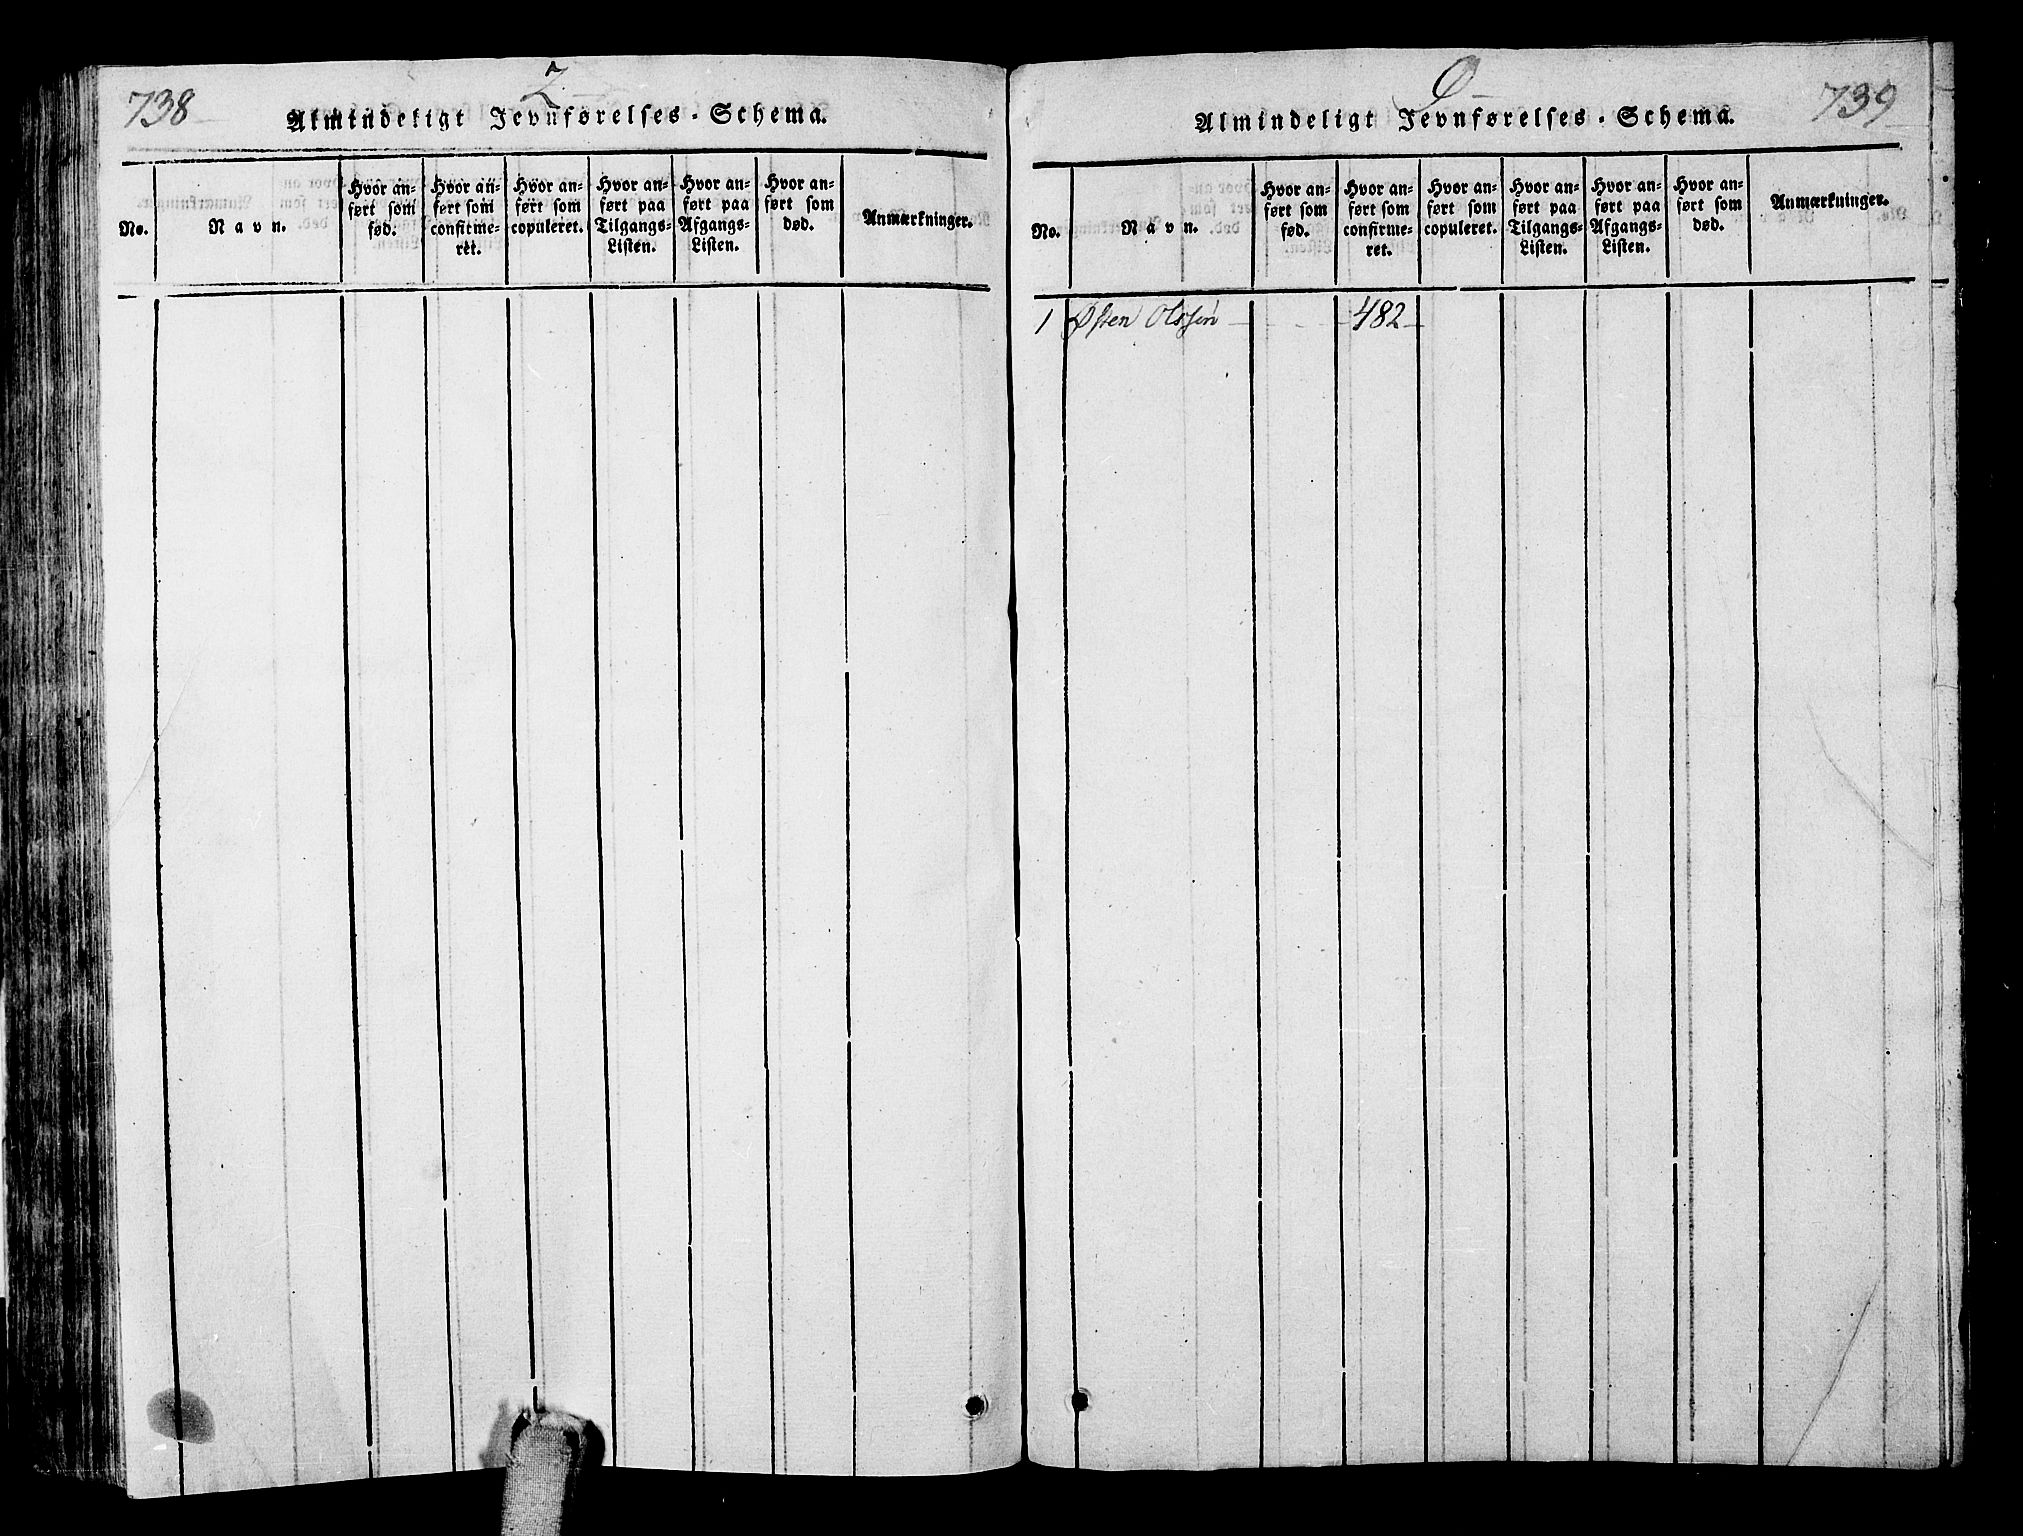 738
Z
Almindeligt Jevnførelses-Schema.
No.
Navn.
Hvor an-
ført som
fød.
Hvor an-
ført som
confirme-
ret.
Hvor an-
ført som
copuleret.
Hvor an-
ført paa
Tilgangs-
Listen.
Hvor an-
ført paa
Afgangs-
Listen.
Hvor an-
ført som
død.
Anmærkninger.
739
Ø
Almindeligt Jevnførelses-Schema.
No.
Navn.
Hvor an-
ført som
fød.
Hvor an-
ført som
confirme-
ret.
Hvor an-
ført som
copuleret.
Hvor an-
ført paa
Tilgangs-
Listen.
Hvor an-
ført paa
Afgangs-
Listen.
Hvor an-
ført som
død.
Anmærkninger.
1 Østen Olssen - - - - 482 -